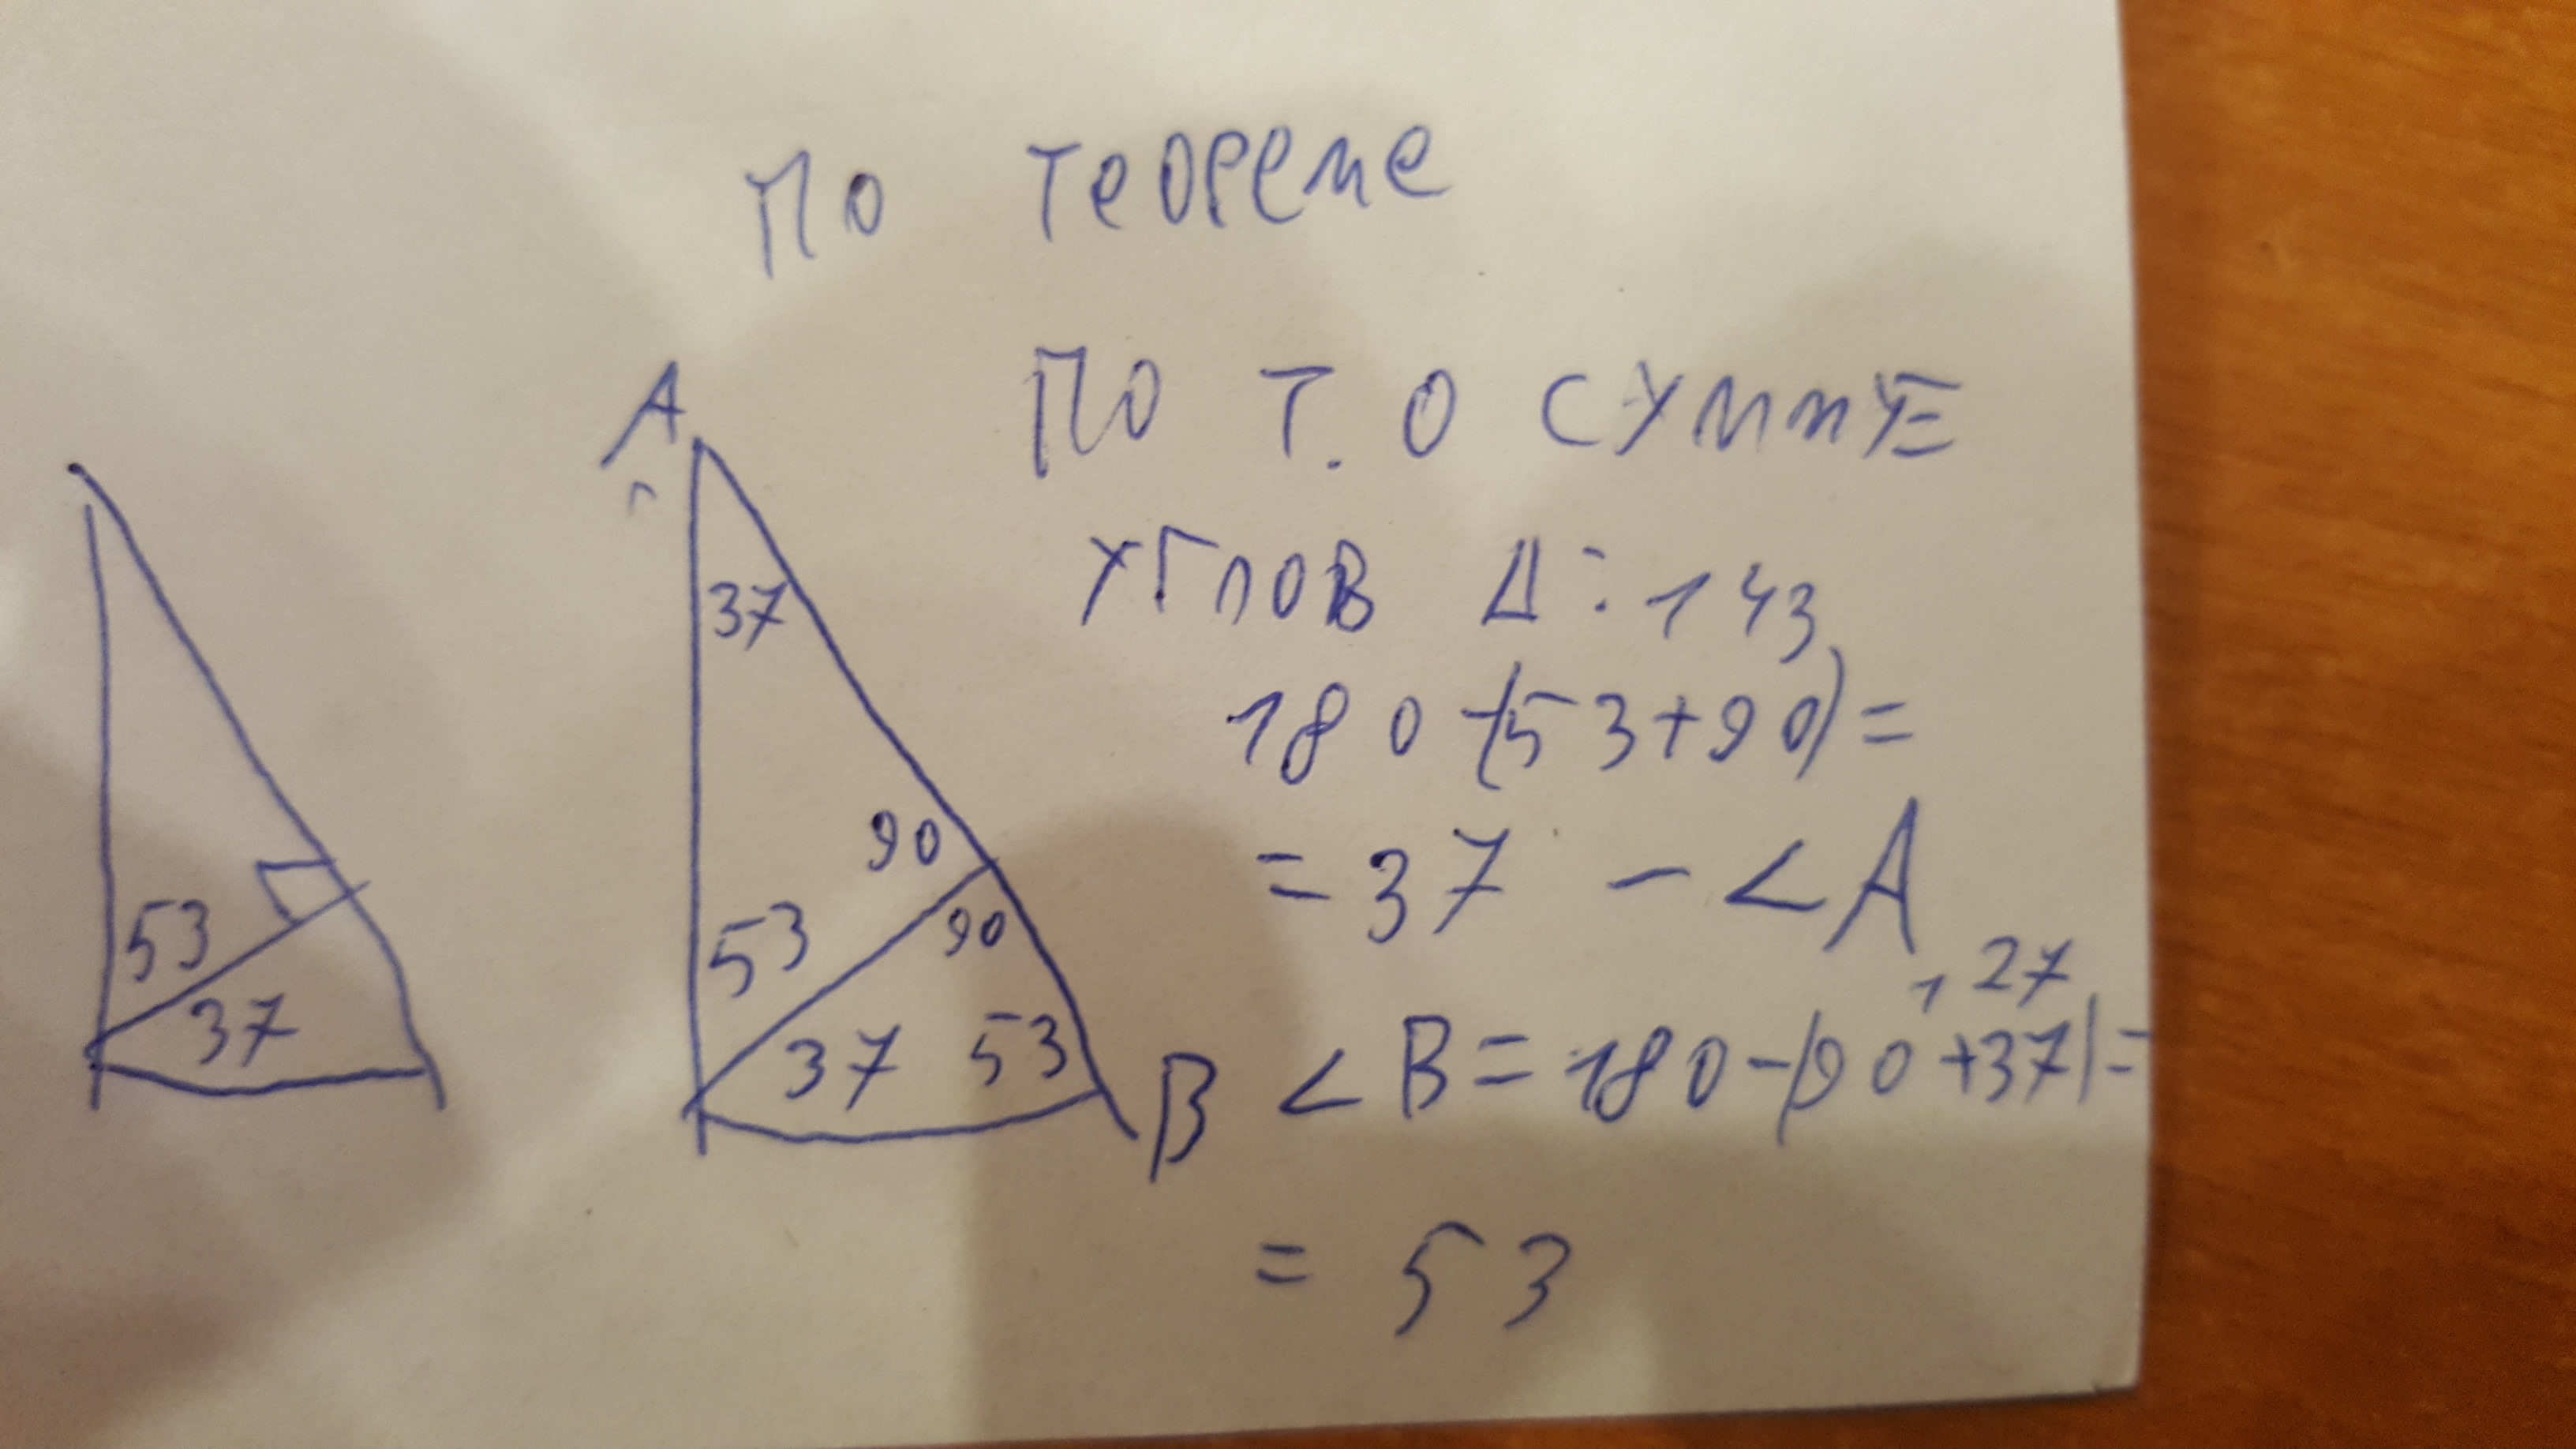 по теореме
по т. о сумме
углов Δ: 143
180-(53+90)=
= 37 - <A
127
<B=180-(90+37)=
= 53
53
37
A
37
90
53
90
37
53
B